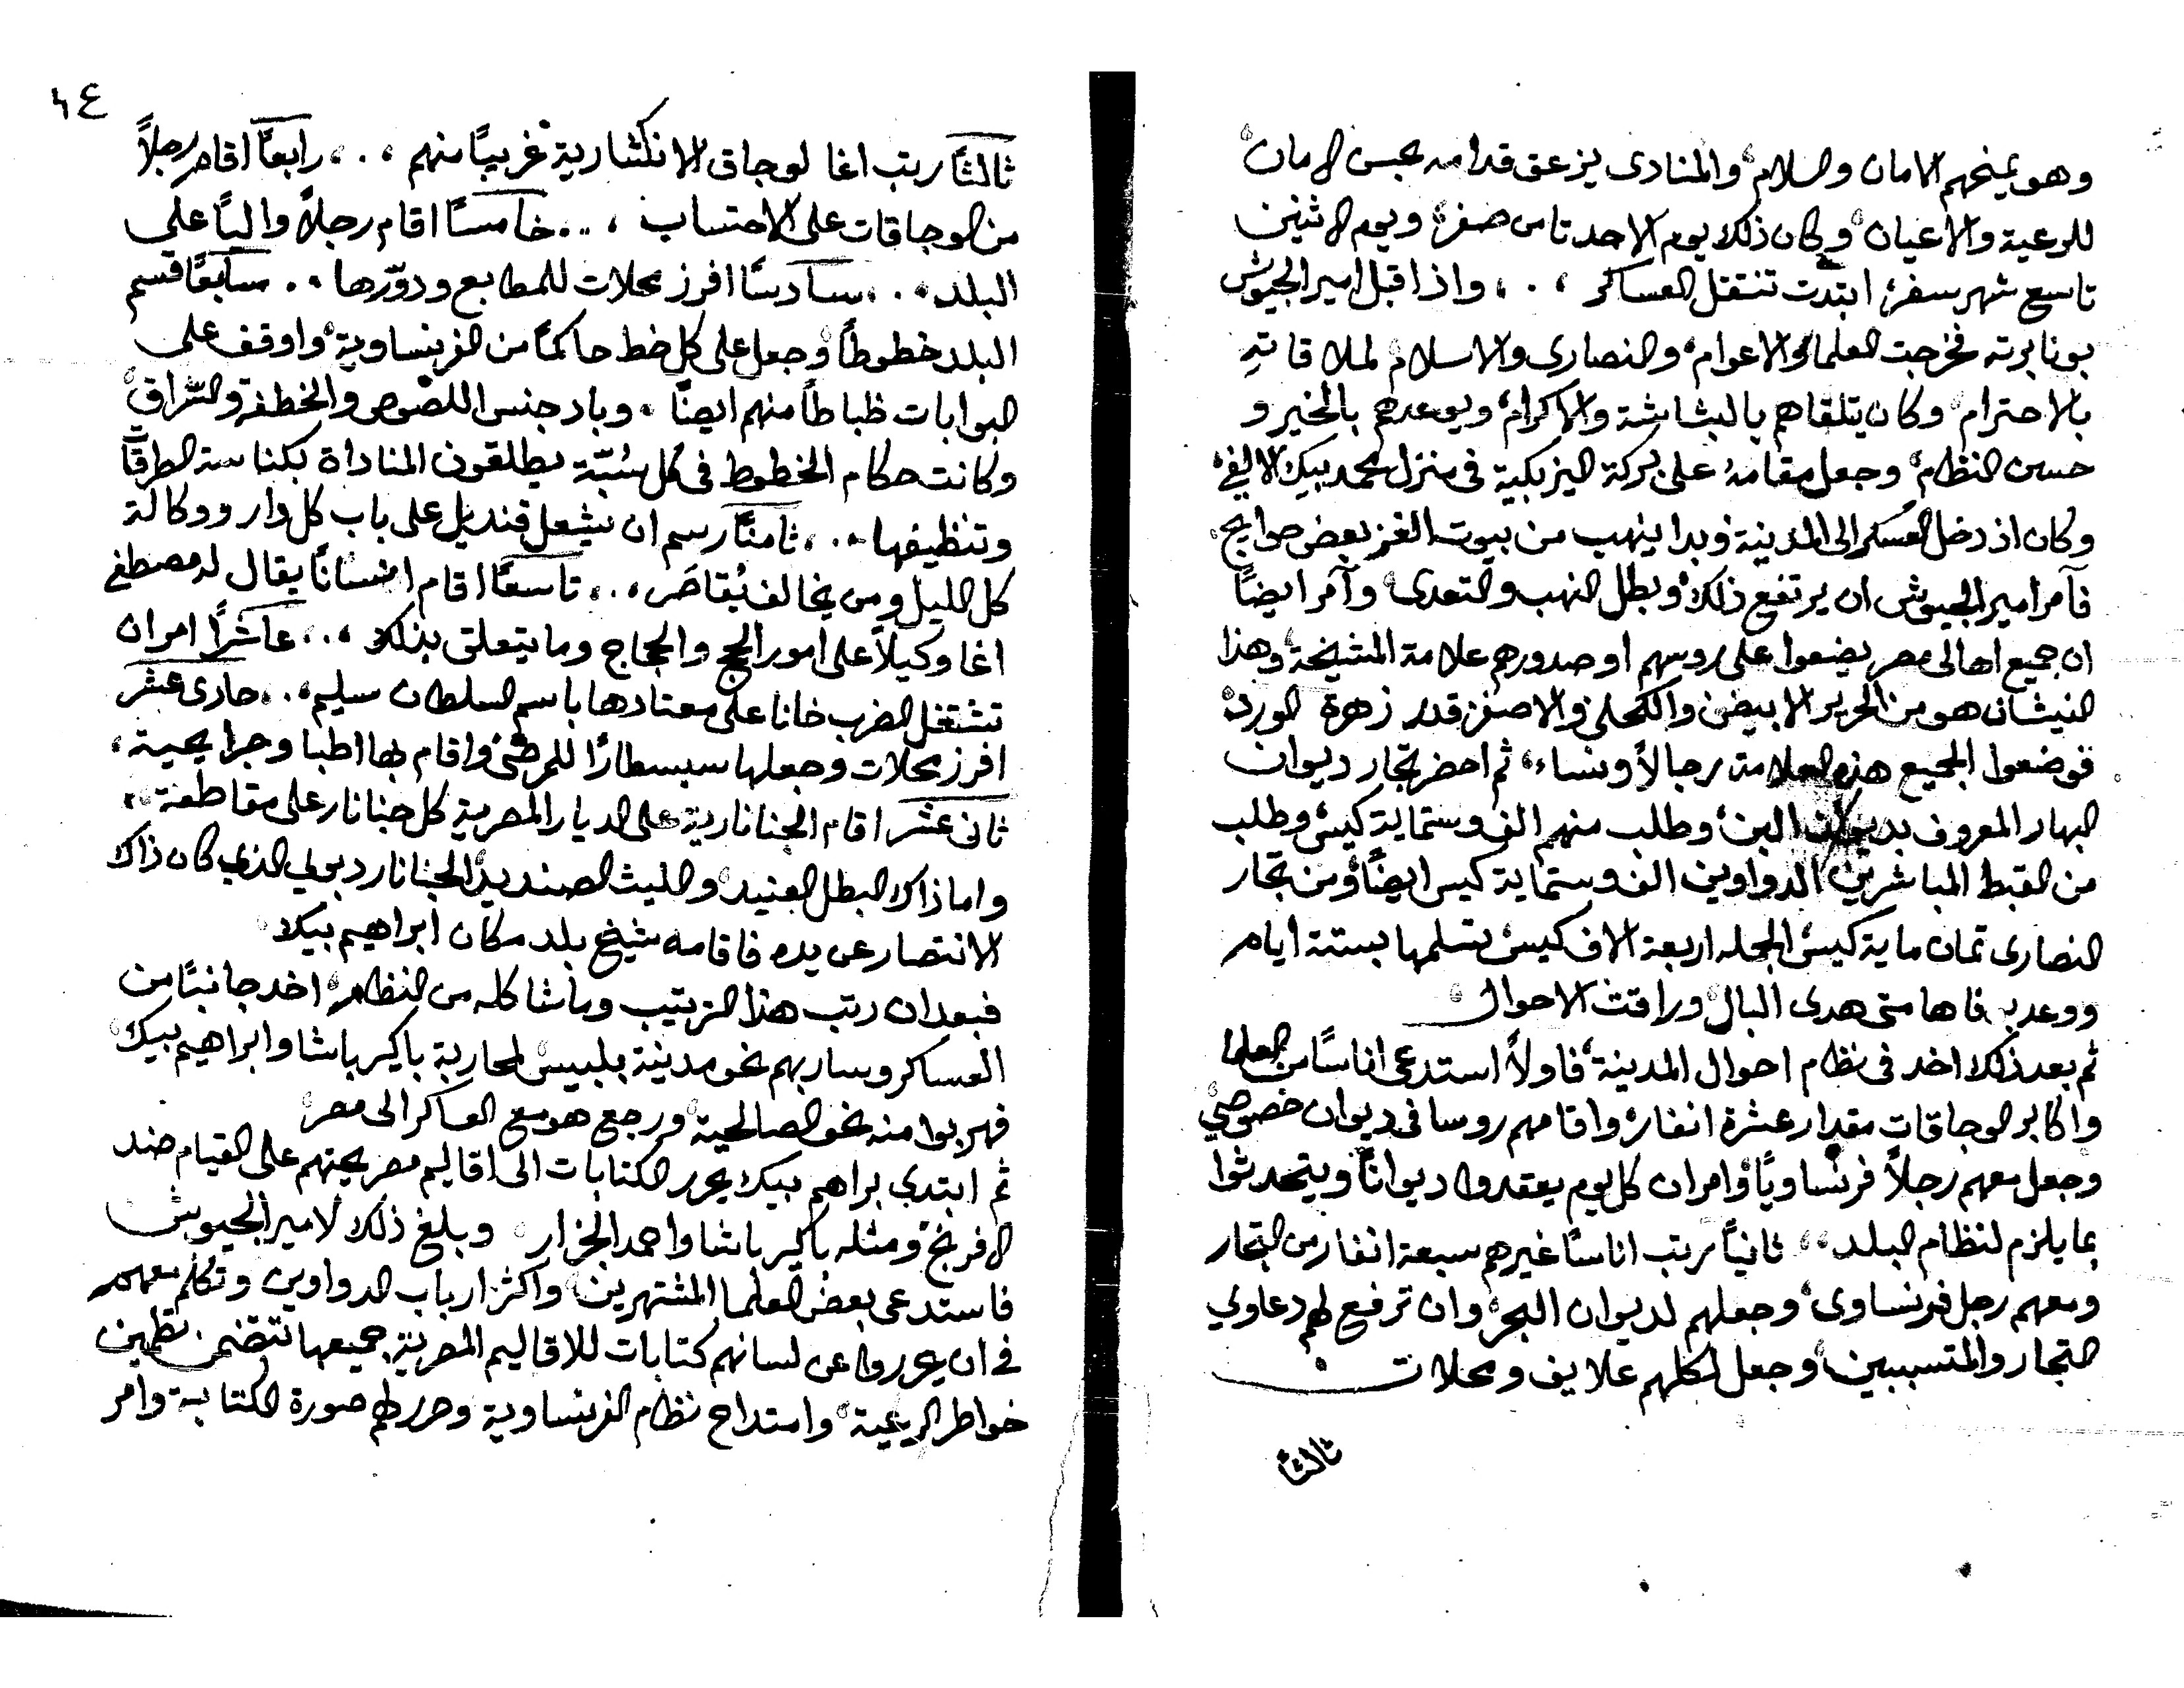 وهو يمنحهم الامان والسلام والمنادى يزعق قدامه بحبس الامان
للرعية والاعيان وكان ذلك يوم الاحد تامن صفر ويوم الاثنين
تاسع شهر سفر ابتدت تنتقل العساكر ، . ، واذا قبل امير الجيوش
بونابرته فخرجت العلما والاعوام والنصارى والاسلام لملاقاته
بالاحترام وكان يتلقاهم بالبشاشة والاكرام ويوعدهم بالخير و
حسن النظام وجعل مقامه على بركة اليزبكية فى منزل محمد بيك الالفى
وكان اذ دخل العسكر الى المدينة وبدا ينهب من بيوت الغز بعض حوايج
فآمر امير الجيوش ان يرتفع ذلك وبطل النهب والتعدى وآمر ايضاً
ان جميع اهالى مصر يضعوا على روسهم او صدورهم علامة المشيخة وهذا
النيشان هو من الحرير الابيض والكحلى والاصفر قدر زهرة الورد
فوضعوا الجميع هذه العلامة رجالاً ونساء ثم احضر تجار ديوان
البهار المعروف بديوان البن وطلب منهم الف وستماية كيس وطلب
من القبط المباشرين الدواوين الف وستماية كيس ايضاً ومن تجار
النصارى تمان ماية كيس الجمله اربعة الاف كيس يتسلمها بستة ايام
ووعد بوفاها متى هدى البال وراقت الاحوال
ثم بعد ذلك اخد فى نظام احوال المدينة فاولاً استدعى اناسًا من العلما
واكابر الوجاقات مقدار عشرة انفار واقامهم روسا فى ديوان خصوصي
وجعل معهم رجلاً فرنساويًا وامر ان كل يوم يعقدوا ديواناً ويتحدثوا
بما يلزم لنظام البلد ،، ثانياً رتب اناسًا غيرهم سبعة انفار من التجار
ومعهم رجل فرنساوى وجعلهم لديوان البحر وان ترفع لهم دعاوي
التجار والمتسببين وجعل لكلهم علايف ومحلات
ثالثاً
٦٤
ثالثاً رتب اغا لوجاق الانكشارية غريبًا منهم ، . ، رابعًا اقام رجلاً
من الوجاقات على الاحتساب ، . . خامسًا اقام رجلاً والياً على
البلد . . ، سادسًا افرز محلات للمطابع ودوّرها . . سابعًا قسم
البلد خطوطاً وجعل على كل خط حاكمًا من الفرنساوية واوقف على
البوابات ظباطاً منهم ايضاً . وباد جنس اللصوص والخطفه والسّراق
وكانت حكام الخطوط فى كل سُبّة يطلقون المناداة بكناسة الطرقات
وتنظيفها . . ، ثامنًا رسم ان يشعل قنديل على باب كل دار ووكالة
كل الليل ومن يخالف يُقاصَر ، . . تاسعًا اقام انسانًا يقال له مصطفى
اغا وكيلاً على امور الحج والحجاج وما يتعلق بذلك ، . . عاشرًا امر ان
تشتغل الضرب خانا على معتادها باسم السلطان سليم . . حادى عشر
افرز محلات وجعلها سبسطارًا للمرضى واقام بها اطبا وجرايحية ،
ثانى عشر اقام الجنانارية على الديار المصرية كل جنانار على مقاطعة ،،
واما ذاك البطل العنيد والليث الصنديد الجنانار ديبوي الذي كان ذاك
الانتصار عن يده فاقامه شيخ بلد مكان ابراهيم بيك
فبعد ان رتب هذا الترتيب وما شاكله من النظام اخد جانبًا من
العساكر وسار بهم نحو مدينة بلبيس لمحاربة باكير باشا وابراهيم بيك
فهربوا منه نحو الصالحية ورجع هو مع العساكر الى مصر
ثم ابتدي براهيم بيك يحرر الكتابات الى اقاليم مصر يحتهم على القيام ضد
الافرنج ومثله باكير باشا واحمد الجزار وبلغ ذلك لامير الجيوش
فاستدعى بعض العلما المشتهرين واكثر ارباب الدواوين وتكلم معهم
فى ان يحرروا عن لسانهم كتابات للاقاليم المصرية جميعها تتضمن تطمين
خواطر الرعية وامتداح نظام الفرنساوية وحرر لهم صورة الكتابة وامر